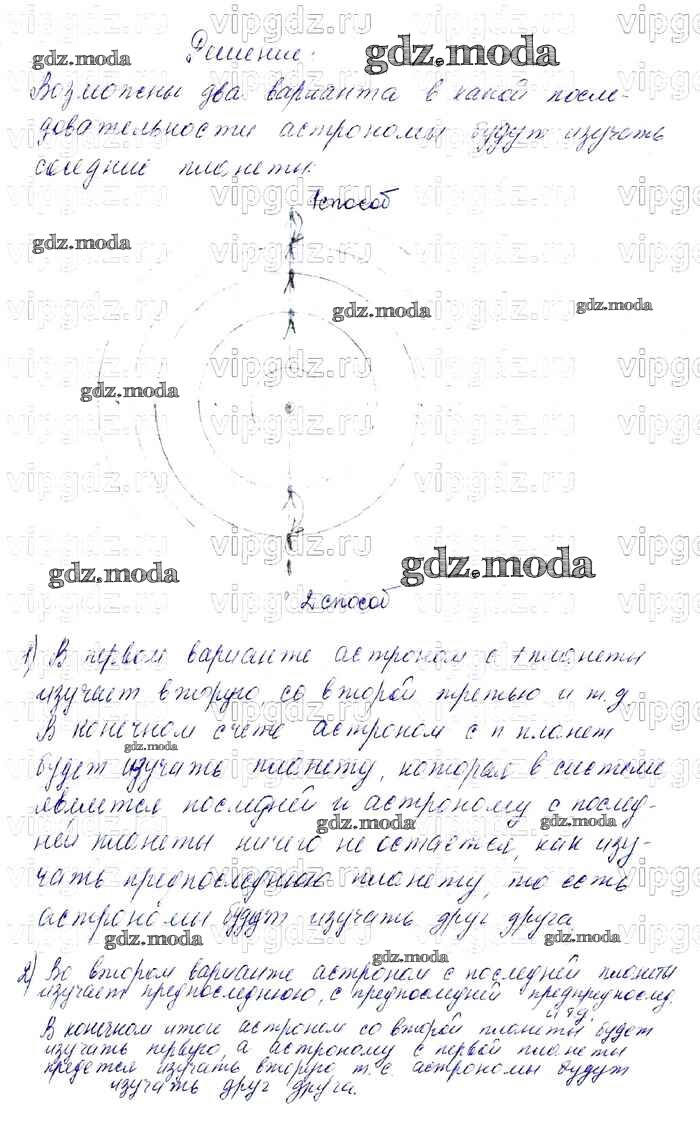 Решение:
Возможны два варианта в какой после-
довательности астрономы будут изучать
соседние планеты.
1 способ
2 способ
1) В первом варианте астроном с 1 планеты
изучает вторую, со второй третью и т.д.
В конечном счете астроном с n планет
будет изучать планету, которая в системе
является последней и астроному с послед-
ней планеты ничего не остается, как изу-
чать предпоследнюю планету, то есть
астрономы будут изучать друг друга
2) Во втором варианте астроном с последней планеты
изучает предпоследнюю, с предпоследней предпредпослед.
и т.д.
В конечном итоге астроном со второй планеты будет
изучать первую, а астроному с первой планеты
придется изучать вторую т.е. астрономы будут
изучать друг друга.
gdz.moda
vipgdz.ru